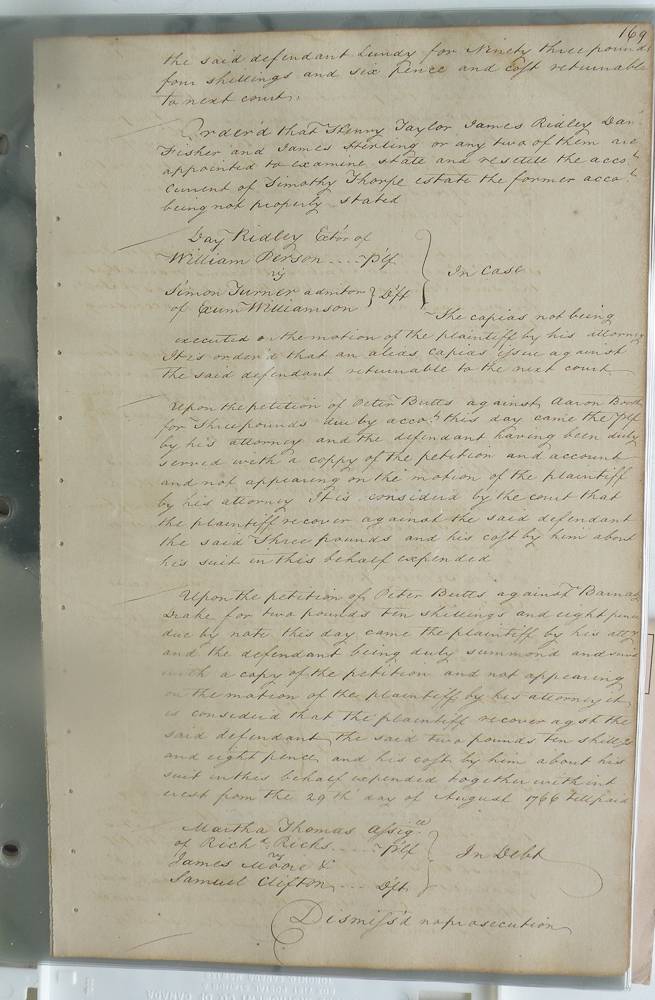 169
the said defendant Lundy for Ninety three pounds
four shillings and six pence and cost returnable
to next court.
Order'd that Henry Taylor James Ridley Dan
Fisher and James Stirling or any two of them are
appointed to examine state and resettle the acco.t
Current of Timothy Thorpe estate the former acco.t
being not properly stated
Day Ridley Ex'tr of
William Person .... Pl'f
vs
In Case
Simon Turner admtor
of Exum Williamson
D'ft
The capias not being
executed on the motion of the plaintiff by his attorney
It is order'd that an aleas capias issue against
the said defendant returnable to the next court
Upon the petition of Peter Butts against Aaron Booth
for Three pounds due by acco.t this day came the pl'f
by his attorney and the defendant having been duly
served with a coppy of the petition and account
and not appearing on the motion of the plaintiff
by his attorney It is considerd by the court that
the plaintiff recover against the said defendant
the said Three pounds and his cost by him about
his suit in this behalf expended
Upon the petition of Peter Butts against Barnaby
Drake for two pounds ten shillings and eight pence
due by note this day came the plaintiff by his atty
and the defendant being duly summond and
with a copy of the petition and not appearing
on the motion of the plaintiff by his attorney it
is considerd that the plaintiff recover agst the
said defendant the said two pounds ten shillgs
and eight pence and his cost by him about his
suit in this behalf expended together with int
erest from the 29th day of August 1766 till paid
Martha Thomas Assig.ee
of Rich.d Ricks .... Pl'f
vs
In Debt
James Moore &
Samuel Clifton .... D'ft
Dismiss'd no prosecution